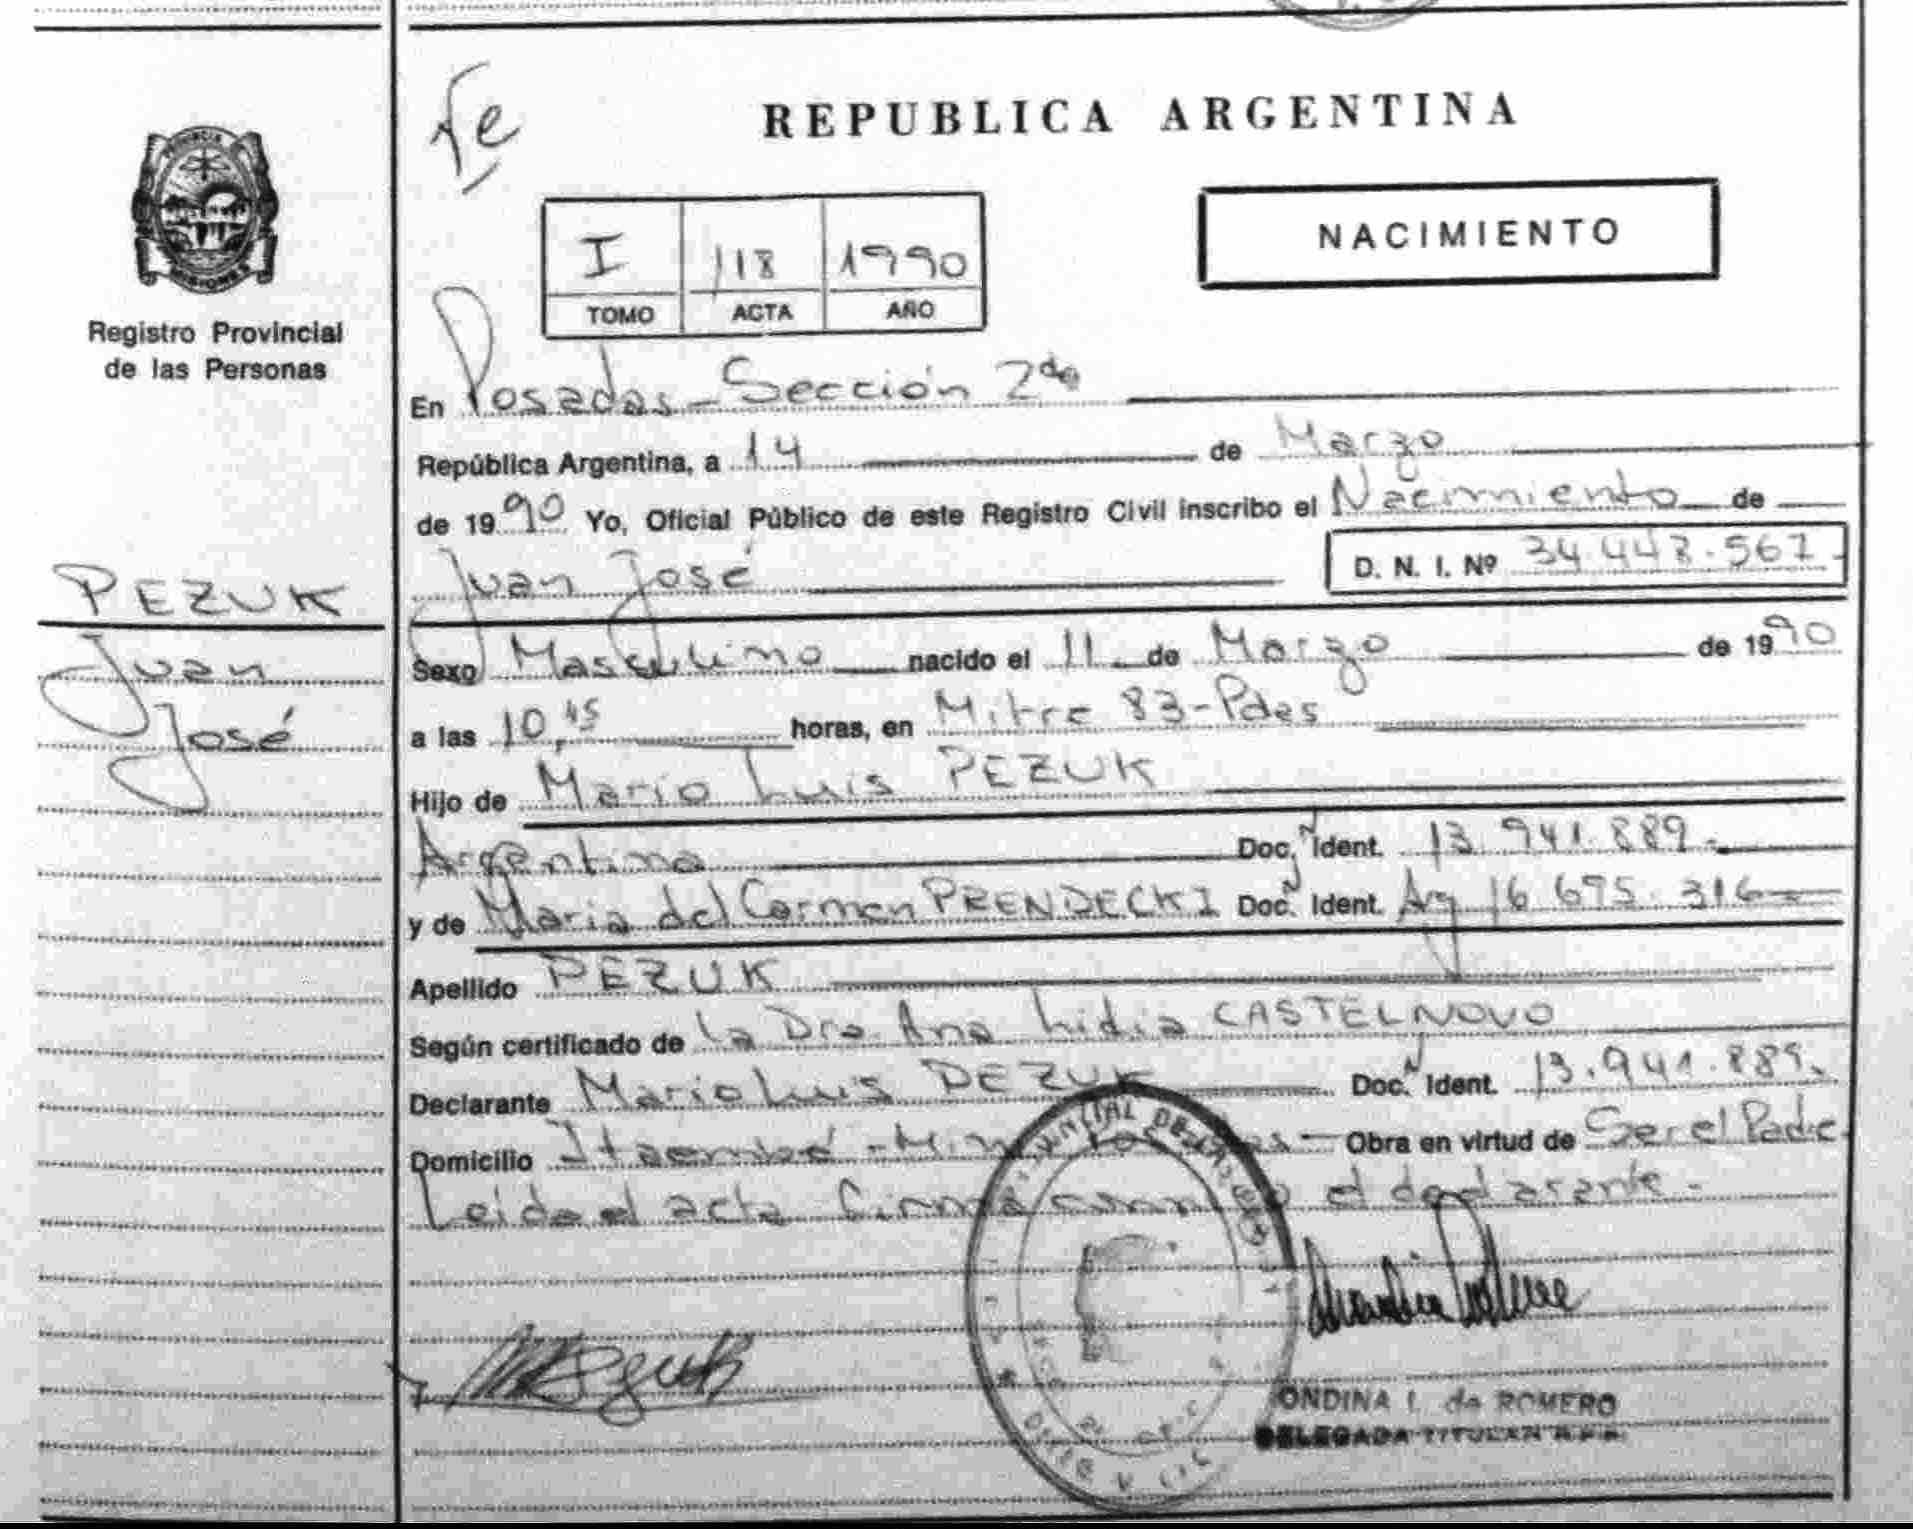 Fe
REPUBLICA ARGENTINA
PROVINCIA
MISIONES
Registro Provincial
de las Personas
NACIMIENTO
I 118 1990
TOMO ACTA AÑO
En Posadas - Sección 2da
República Argentina, a 14 de Marzo
de 1990 Yo, Oficial Público de este Registro Civil inscribo el Nacimiento de
Juan José D. N. I. Nº 34.448.567.
PEZUK
Juan
José
Sexo Masculino nacido el 11 de Marzo de 1990
a las 10,45 horas, en Mitre 83-Pdas
Hijo de Mario Luis PEZUK
Argentino Doc. Ident. 13.941.889.-
y de Maria del Carmen PRENDECKI Doc. Ident. Ag 16.695.316
Apellido PEZUK
Según certificado de la Dra. Ana Lidia CASTELNOVO
Declarante Mario Luis PEZUK Doc. Ident. 13.941.889.
Domicilio Itaembé - Obra en virtud de Ser el Padre
Leida el acta firma conmigo el declarante.-
ONDINA I. de ROMERO
DELEGADA TITULAR R.P.P.